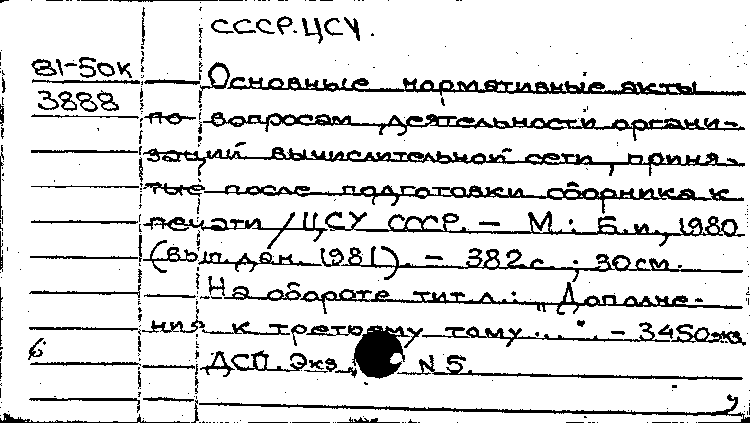 СССР. ЦСУ.
81-50к
3888
Основные нормативные акты
по вопросам деятельности органи-
заций вычислительной сети, приня-
тые после подготовки сборника к
печати / ЦСУ СССР. – М.: Б.и., 1980
(вып. дан. 1981). – 382 с. ; 30 см.
На обороте тит. л.: „Дополне-
ния к третьему тому...". – 3450 экз
ДСП. Экз. N 5.
б
у